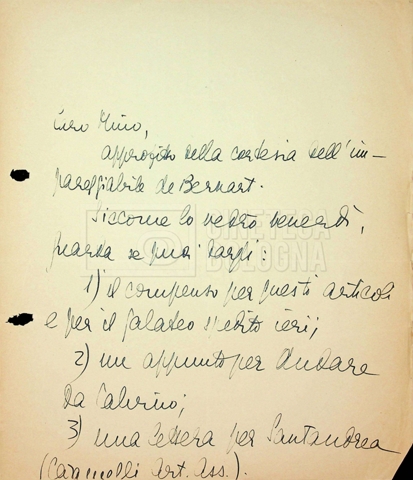 Caro Mino,
approfitto della cortesia dell'im-
pareggiabile de Bernart.
Siccome lo vedrò venerdì,
guarda se puoi dargli:
1) il compenso per questi articoli
e per il galateo s'edito ieri;
2) un appunto per andare
da Calvino;
3) una lettera per Santandrea
(Caramelli Art. Ass.).
CINETECA
BOLOGNA